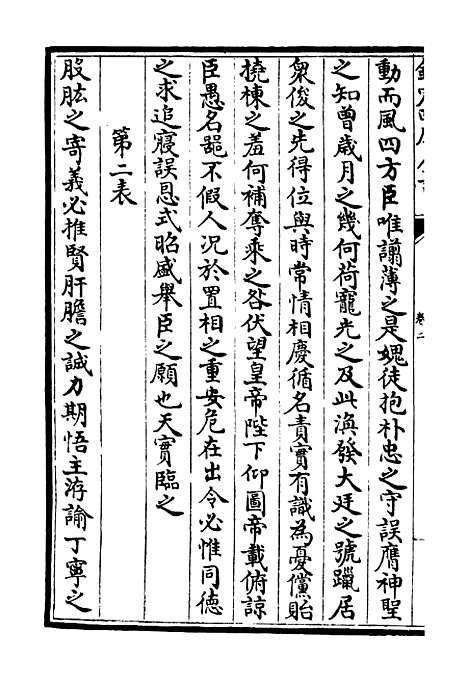 動而風四方臣唯譾薄之是媿徒抱朴忠之守誤膺神聖
之知曾歳月之幾何荷寵光之及此渙發大廷之號躐居
衆俊之先得位與時常情相慶循名責實有識為憂儻貽
撓棟之羞何補奪乘之咎伏望皇帝陛下仰圖帝載俯諒
臣愚名噐不假人況於置相之重安危在出令必惟同徳
之求追寢誤恩式昭盛舉臣之願也天實臨之
第二表
股肱之寄義必推賢肝膽之誠力期悟主㳺諭丁寧之
卷二